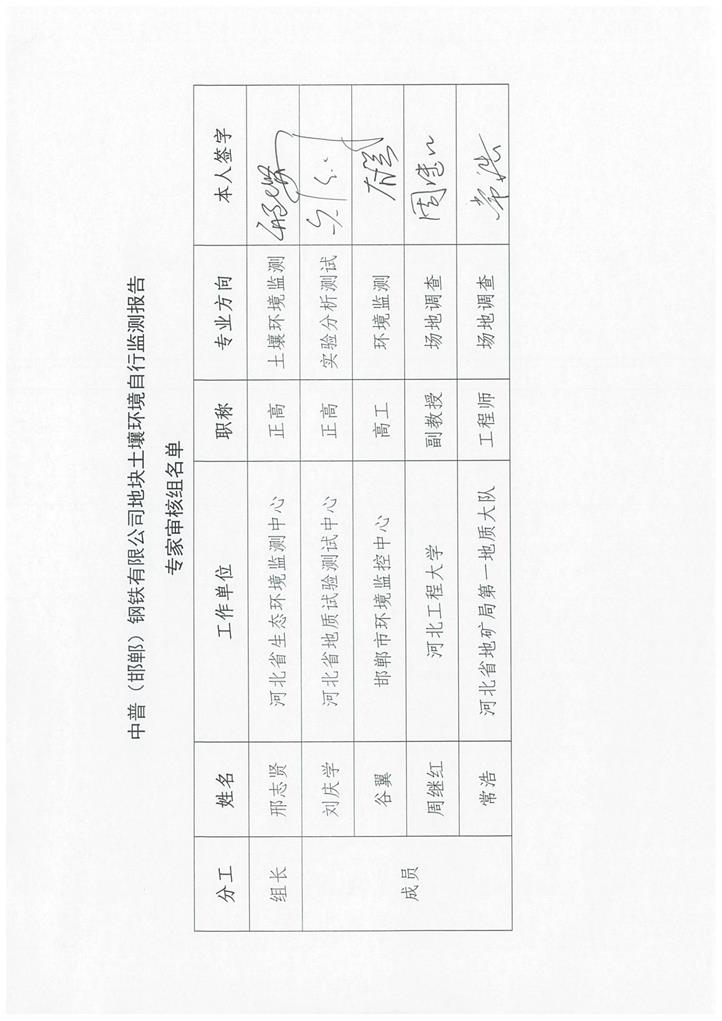 中普（邯郸）钢铁有限公司地块土壤环境自行监测报告
专家审核组名单
分工 姓名 工作单位 职称 专业方向 本人签字
组长 邢志贤 河北省生态环境监测中心 正高 土壤环境监测
成员 刘庆学 河北省地质试验测试中心 正高 实验分析测试
谷翼 邯郸市环境监控中心 高工 环境监测
周继红 河北工程大学 副教授 场地调查
常浩 河北省地矿局第一地质大队 工程师 场地调查 常浩